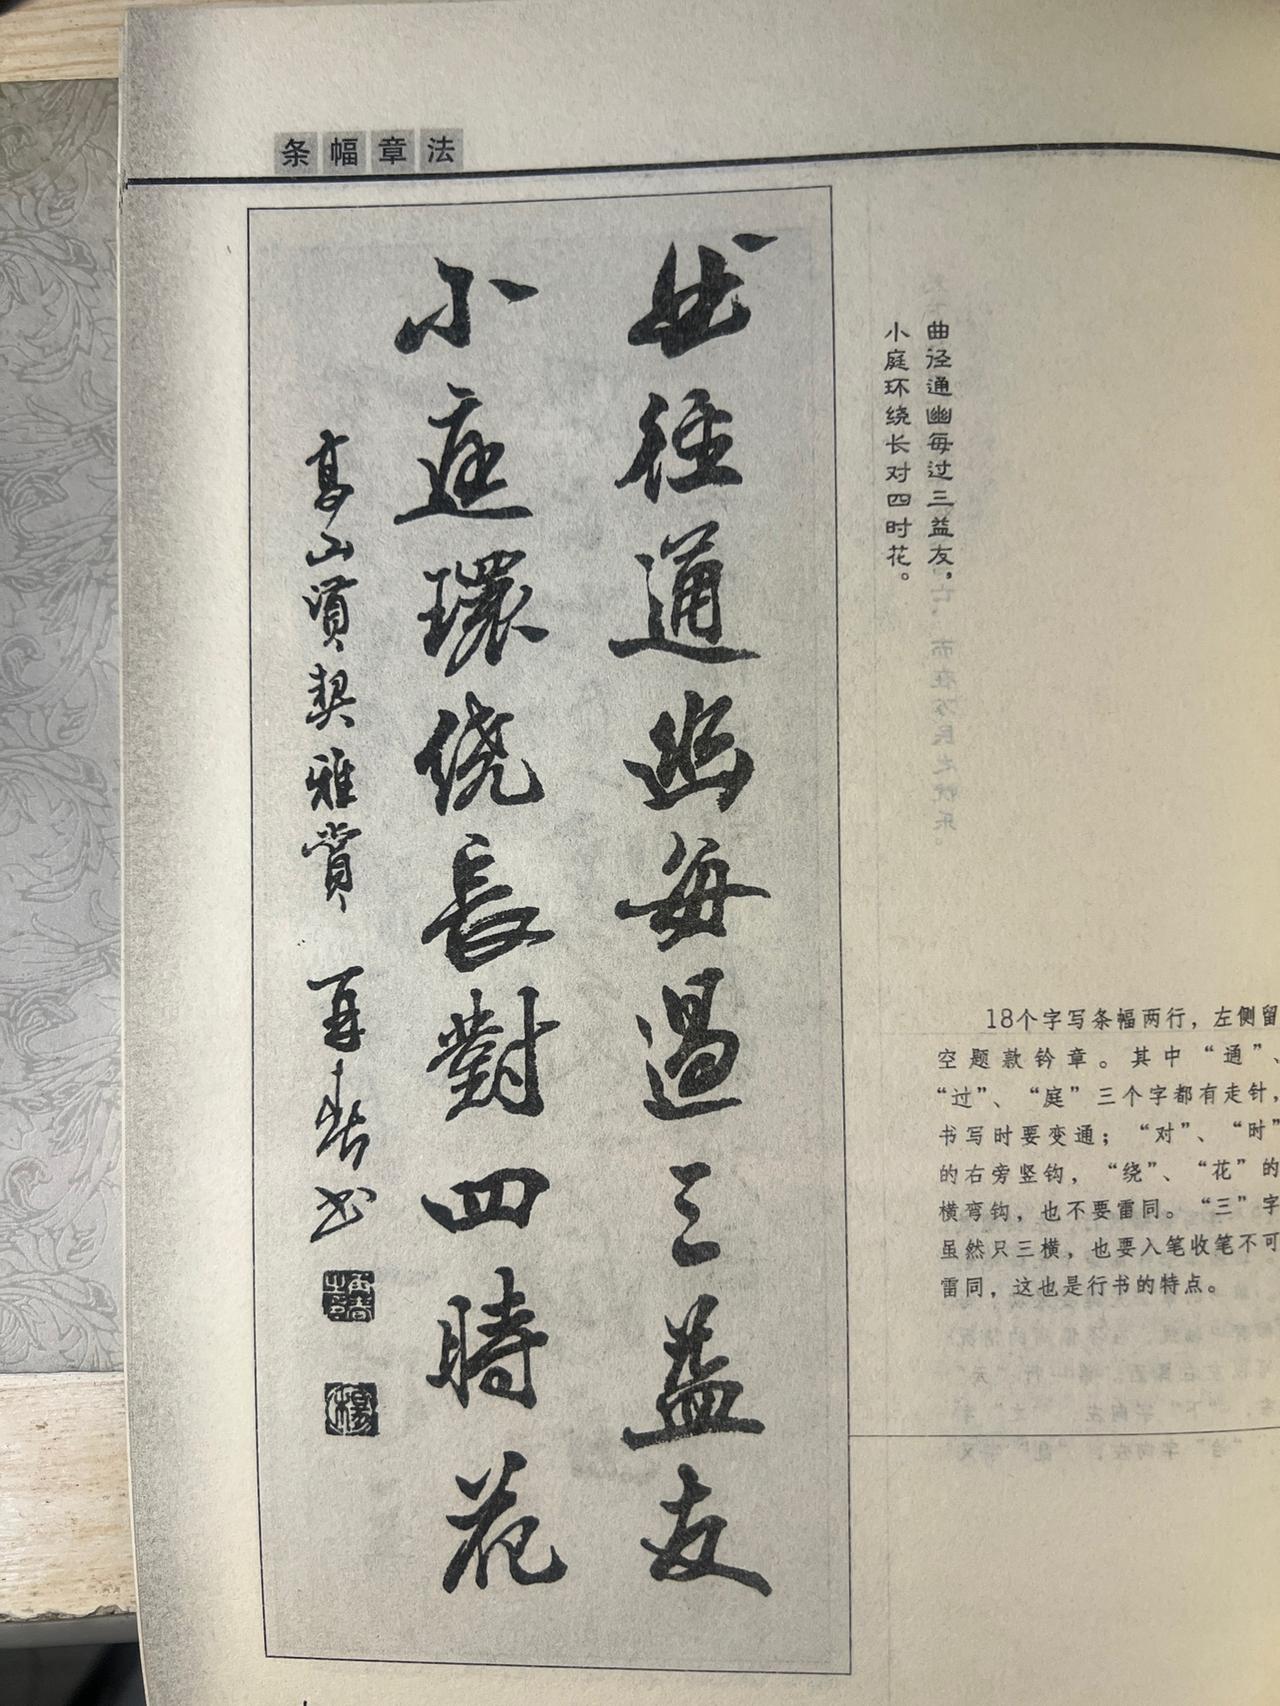 条幅章法
曲径通幽每過三益友
小庭環繞長對四時花
再春书
曲径通幽每过三益友，
小庭环绕长对四时花。
18个字写条幅两行，左侧留
空题款钤章。其中“通”、
“过”、“庭”三个字都有走针，
书写时要变通；“对”、“时”
的右旁竖钩，“绕”、“花”的
横弯钩，也不要雷同。“三”字
虽然只三横，也要入笔收笔不可
雷同，这也是行书的特点。